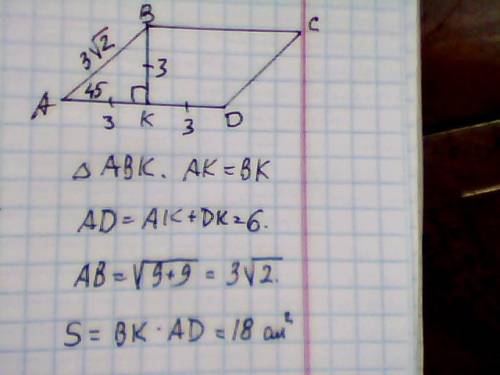 B
C
3√2
3
A
45
3
K
3
D
△ ABK. AK = BK
AD = AK + DK = 6.
AB = √9+9 = 3√2.
S = BK · AD = 18 см²